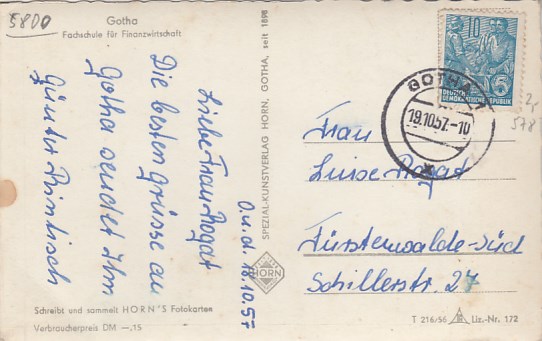 5800
Gotha
Fachschule für Finanzwirtschaft
O.u.d. 18.10.57
Liebe Frau Rogat
Die besten Grüsse aus
Gotha sendet Ihnen
Günter
SPEZIAL-KUNSTVERLAG HORN, GOTHA, seit 1898
HORN
10
5
DEUTSCHE
DEMOKRATISCHE REPUBLIK
GOTHA
19.10.57.-10
Frau
Luise Rogat
Fürstenwalde-Süd
Schillerstr. 27
Schreibt und sammelt HORN'S Fotokarten
Verbraucherpreis DM —.15
T 216/56
Liz.-Nr. 172